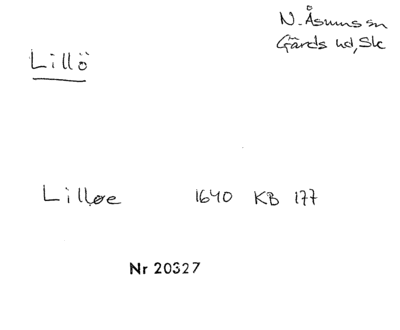 N. Åsums sn
Gärds hd, Sk
Lillö
Lilløe 1640 KB 177
Nr 20327